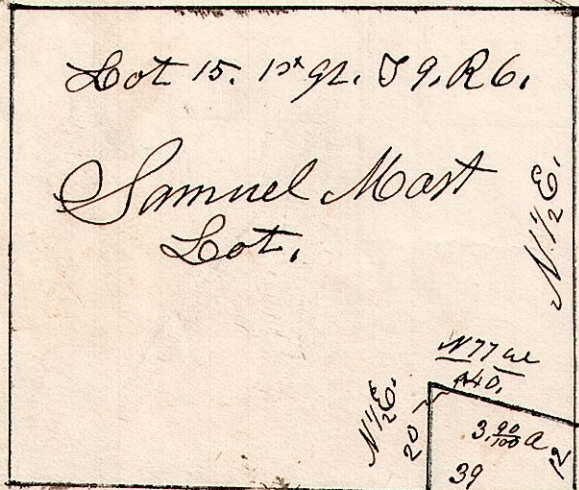 Lot 15. 1st qr. T 9. R 6.
Samuel Mast
Lot.
N 1/2 E.
N 77 W
N 1/2 E.
20
3. 90/100 a
12
39